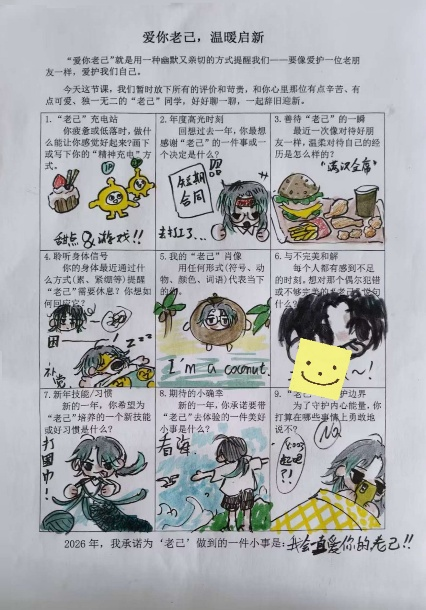 爱你老己，温暖启新
“爱你老己”就是用一种幽默又亲切的方式提醒我们——要像爱护一位老朋
友一样，爱护我们自己。
今天这节课，我们暂时放下所有的评价和苛责，和你心里那位有点辛苦、有
点可爱、独一无二的“老己”同学，好好聊一聊，一起辞旧迎新。
1. “老己”充电站
你疲惫或低落时，做什
么能让你感觉好起来？画下
或写下你的“精神充电”方
式。
甜点&游戏!!
2. 年度高光时刻
回想过去一年，你最想
感谢“老己”的一件事或一
个决定是什么？
短期
合同
去打工...
3. 善待“老己”的一瞬
最近一次像对待好朋
友一样，温柔对待自己的经
历是怎么样的？
“满汉全席”
4. 聆听身体信号
你的身体最近通过什
么方式（累、紧绷等）提醒
“老己”需要休息？你想如
何回应它？
zzz
补觉
5. 我的“老己”肖像
用任何形式（符号、动
物、颜色、词语）代表当下
的
I'm a coconut.
6. 与不完美和解
每个人都有感到不足
的时刻，想对那个偶尔犯错
或不够完美的“老己”说句
什么
~!
7. 新年技能/习惯
新的一年，你希望为
“老己”培养的一个新技能
或好习惯是什么？
打围巾!
8. 期待的小确幸
新的一年，你承诺要带
“老己”去体验的一件美好
小事是什么？
看海
9. “老己”护边界
为了守护内心能量，你
打算在哪些事情上勇敢地
说不？
No
2026 年，我承诺为‘老己’做到的一件小事是：我会一直爱你的老己!!